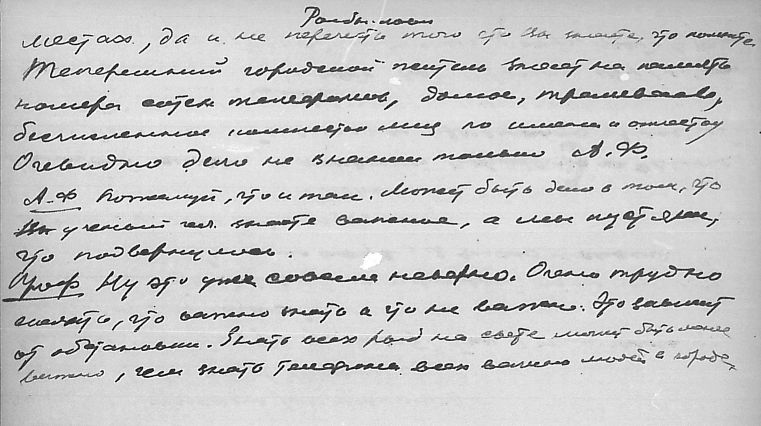 местах, да и не перечесть того что Вы знаете, что помните.
Теперешний городской житель знает на память
номера сотен телефонов, домов, трамваев,
бесчисленное количество лиц по имени и отчеству
Очевидно дело не в знании только А.Ф.
А.Ф Пожалуй, что и так. Может быть дело в том, что
Вы ученый чел. знаете важное, а мы пустяки,
что подвернулось.
Проф Ну это уже совсем неверно. Очень трудно
сказать, что важно знать а что не важно. Это зависит
от обстановки. Знать всех рыб на свете может быть менее
важно, чем знать телефоны всех важных людей в городе,